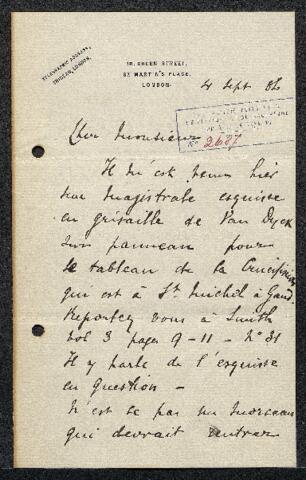 TELEGRAPHIC ADDRESS,
LONDON.
18, GREEN STREET,
ST MARTIN'S PLACE,
LONDON.
4 Sept 86
Cher Monsieur
No 2687
Il m'est venu hier
une magistrale esquisse
en grisaille de Van Dyck
sur panneau pour
le tableau de la Crucifixion
qui est à St Michel à Gand.
Reportez vous à Smith
vol 3 pages 9-11 - No 31
Il y parle de l'esquisse
en question -
N'est ce pas un morceau
qui devrait rentrer